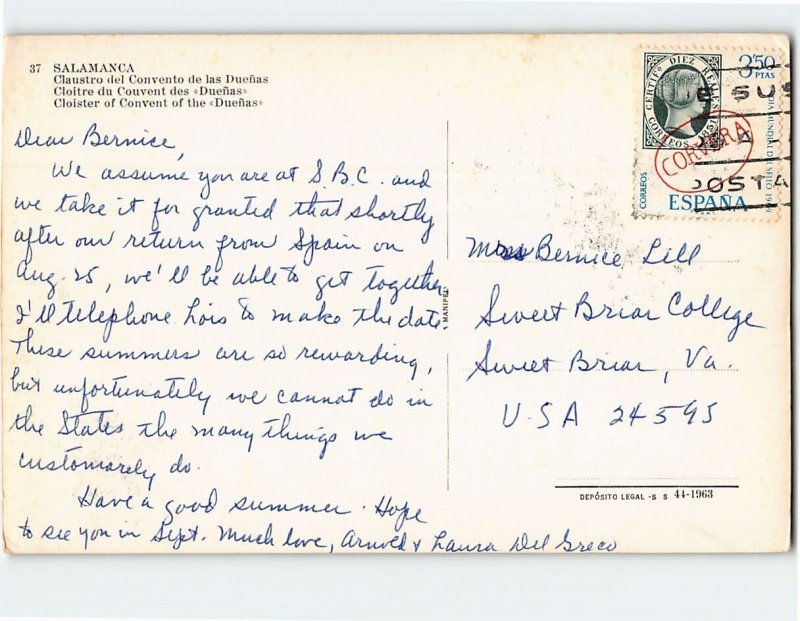 37 SALAMANCA
Claustro del Convento de las Dueñas
Cloitre du Couvent des «Dueñas»
Cloister of Convent of the «Dueñas»
Dear Bernice,
We assume you are at S.B.C. and
we take it for granted that shortly
after our return from Spain on
Aug. 25, we'll be able to get together
I'll telephone Lois to make the date
These summers are so rewarding,
but unfortunately we cannot do in
the States the many things we
customarily do.
Have a good summer. Hope
to see you in Sept. Much love, Arnold & Laura Del Greco
MANIPEL
CERTIFº DIEZ REALES
CORREOS 1851
3'50
PTAS
DIA MUNDIAL DEL SELLO 1969
CORVERA
CORREOS
ESPAÑA
E SUS
POSTA
Bernice Lill
Sweet Briar College
Sweet Briar, Va.
USA 24595
DEPÓSITO LEGAL - S S 44-1963